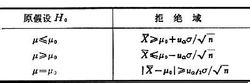 原假设 H₀ 拒 绝 域
μ≤μ₀ X̄≥μ₀+u_α σ/√n
μ≥μ₀ X̄≤μ₀-u_α σ/√n
μ=μ₀ |X̄-μ₀|≥u_α/₂ σ/√n